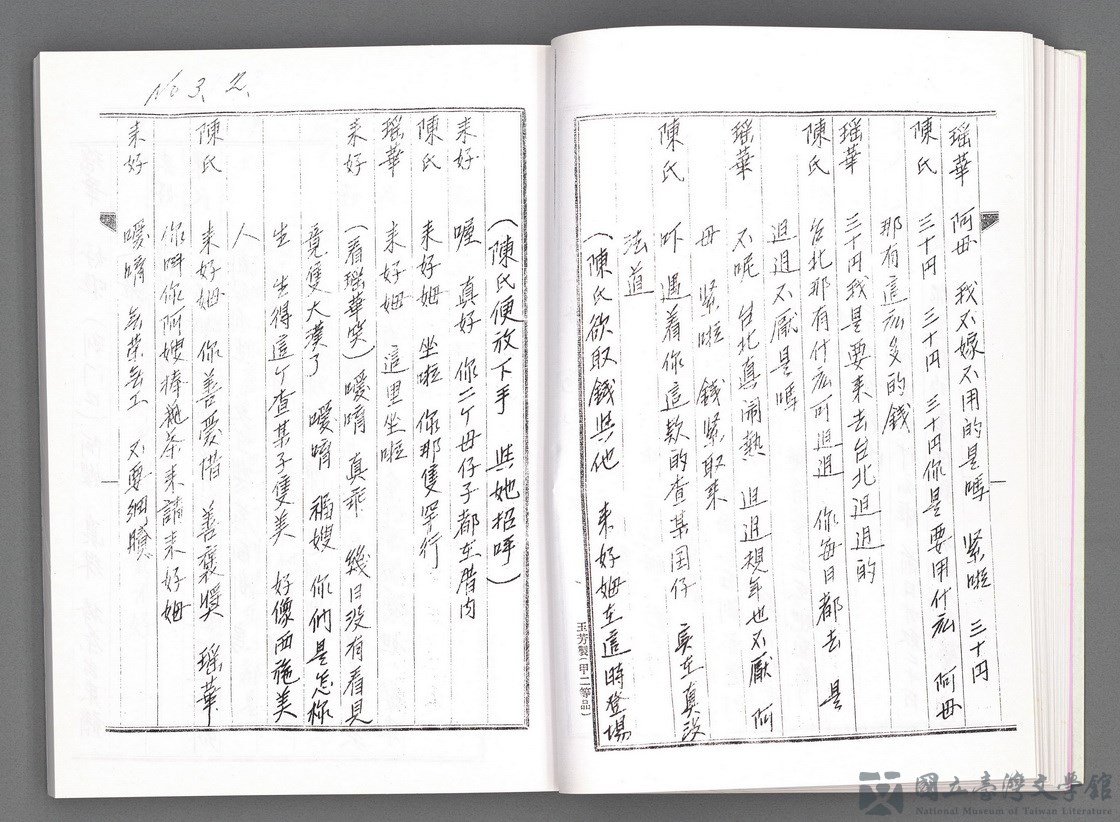 瑶華 阿母 我不嫁不用的是嗎 緊啦 三十円
陳氏 三十円 三十円 三十円你是要用什広 阿母
那有這広多的錢
瑶華 三十円我是要来去台北𨑨迌的
陳氏 台北那有什広可𨑨迌 你每日都去 是
𨑨迌不厭是嗎
瑶華 不呢 台北真闹熱 𨑨迌規年也不厭 阿
母 緊啦 錢緊取来
陳氏 吓 遇着你這款的查某囝仔 实在真没
法道
(陳氏欲取錢與他 来好姆在這時登場
玉芳製(甲二等品)
(陳氏便放下手 與她招呼)
来好 喔 真好 你二个母仔子都在厝内
陳氏 来好姆 坐啦 你那隻罕行
瑶華 来好姆 這里坐啦
来好 (看瑶華笑)噯唷 真乖 幾日没有看見
竟隻大漢了 噯唷 稲嫂 你们是怎様
生 生得這个查某子隻美 好像西施美
人
陳氏 来好姆 你善愛借 善褒奨 瑶華
你叫你阿嫂捧甌茶来請来好姆
来好 噯唷 無茶無工 不要細膩
No 3. 2.
國立臺灣文學館
National Museum of Taiwan Literature